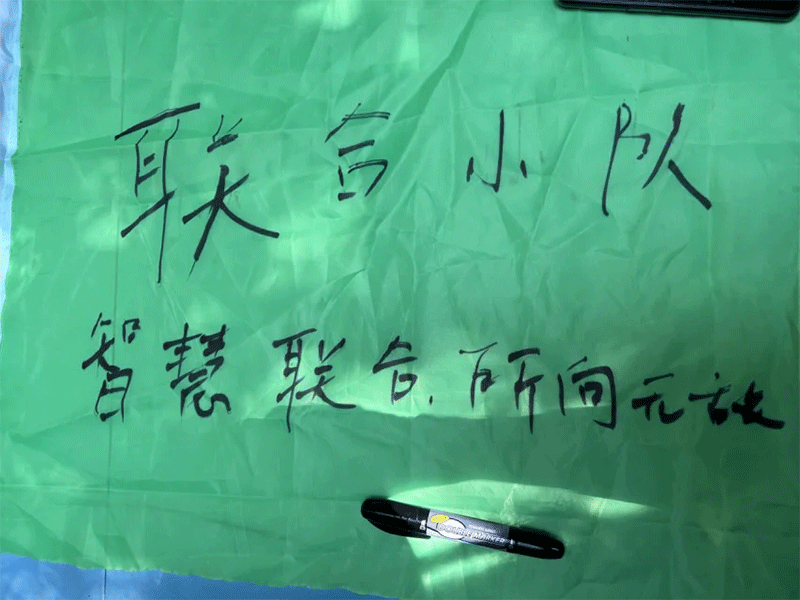 联合小队
智慧联合.所向无敌
MARKER